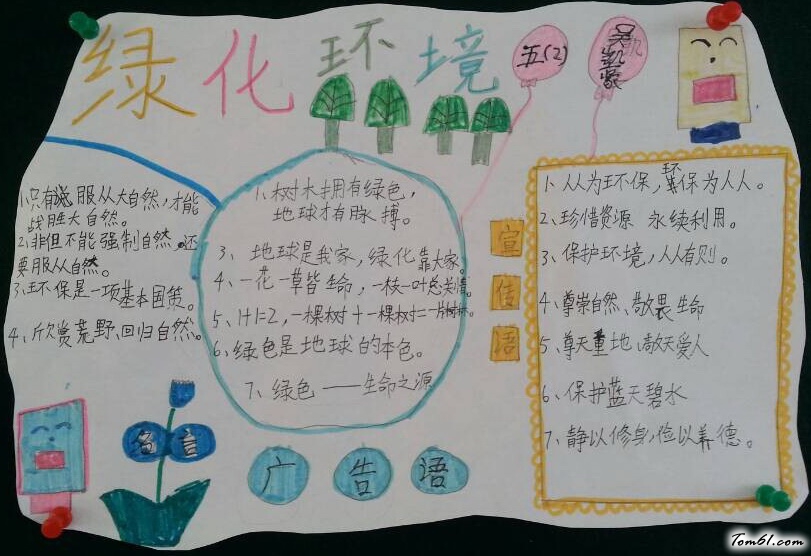 绿化环境
五(2)
吴凯
1.只有服从大自然,才能
战胜大自然。
2.非但不能强制自然,还
要服从自然。
3.环保是一项基本国策。
4.欣赏荒野、回归自然。
名言
1、树木拥有绿色,
地球才有脉搏。
3、地球是我家,绿化靠大家。
4、一花一草皆生命,一枝一叶总关情。
5、1+1=2,一棵树+一棵树=一片树林。
6、绿色是地球的本色。
7、绿色——生命之源
广告语
宣传语
1、人人为环保,环保为人人。
2、珍惜资源 永续利用。
3、保护环境,人人有则。
4、尊崇自然、敬畏生命
5、尊天重地、敬天爱人
6、保护蓝天碧水
7、静以修身,俭以养德。
Tom61.com